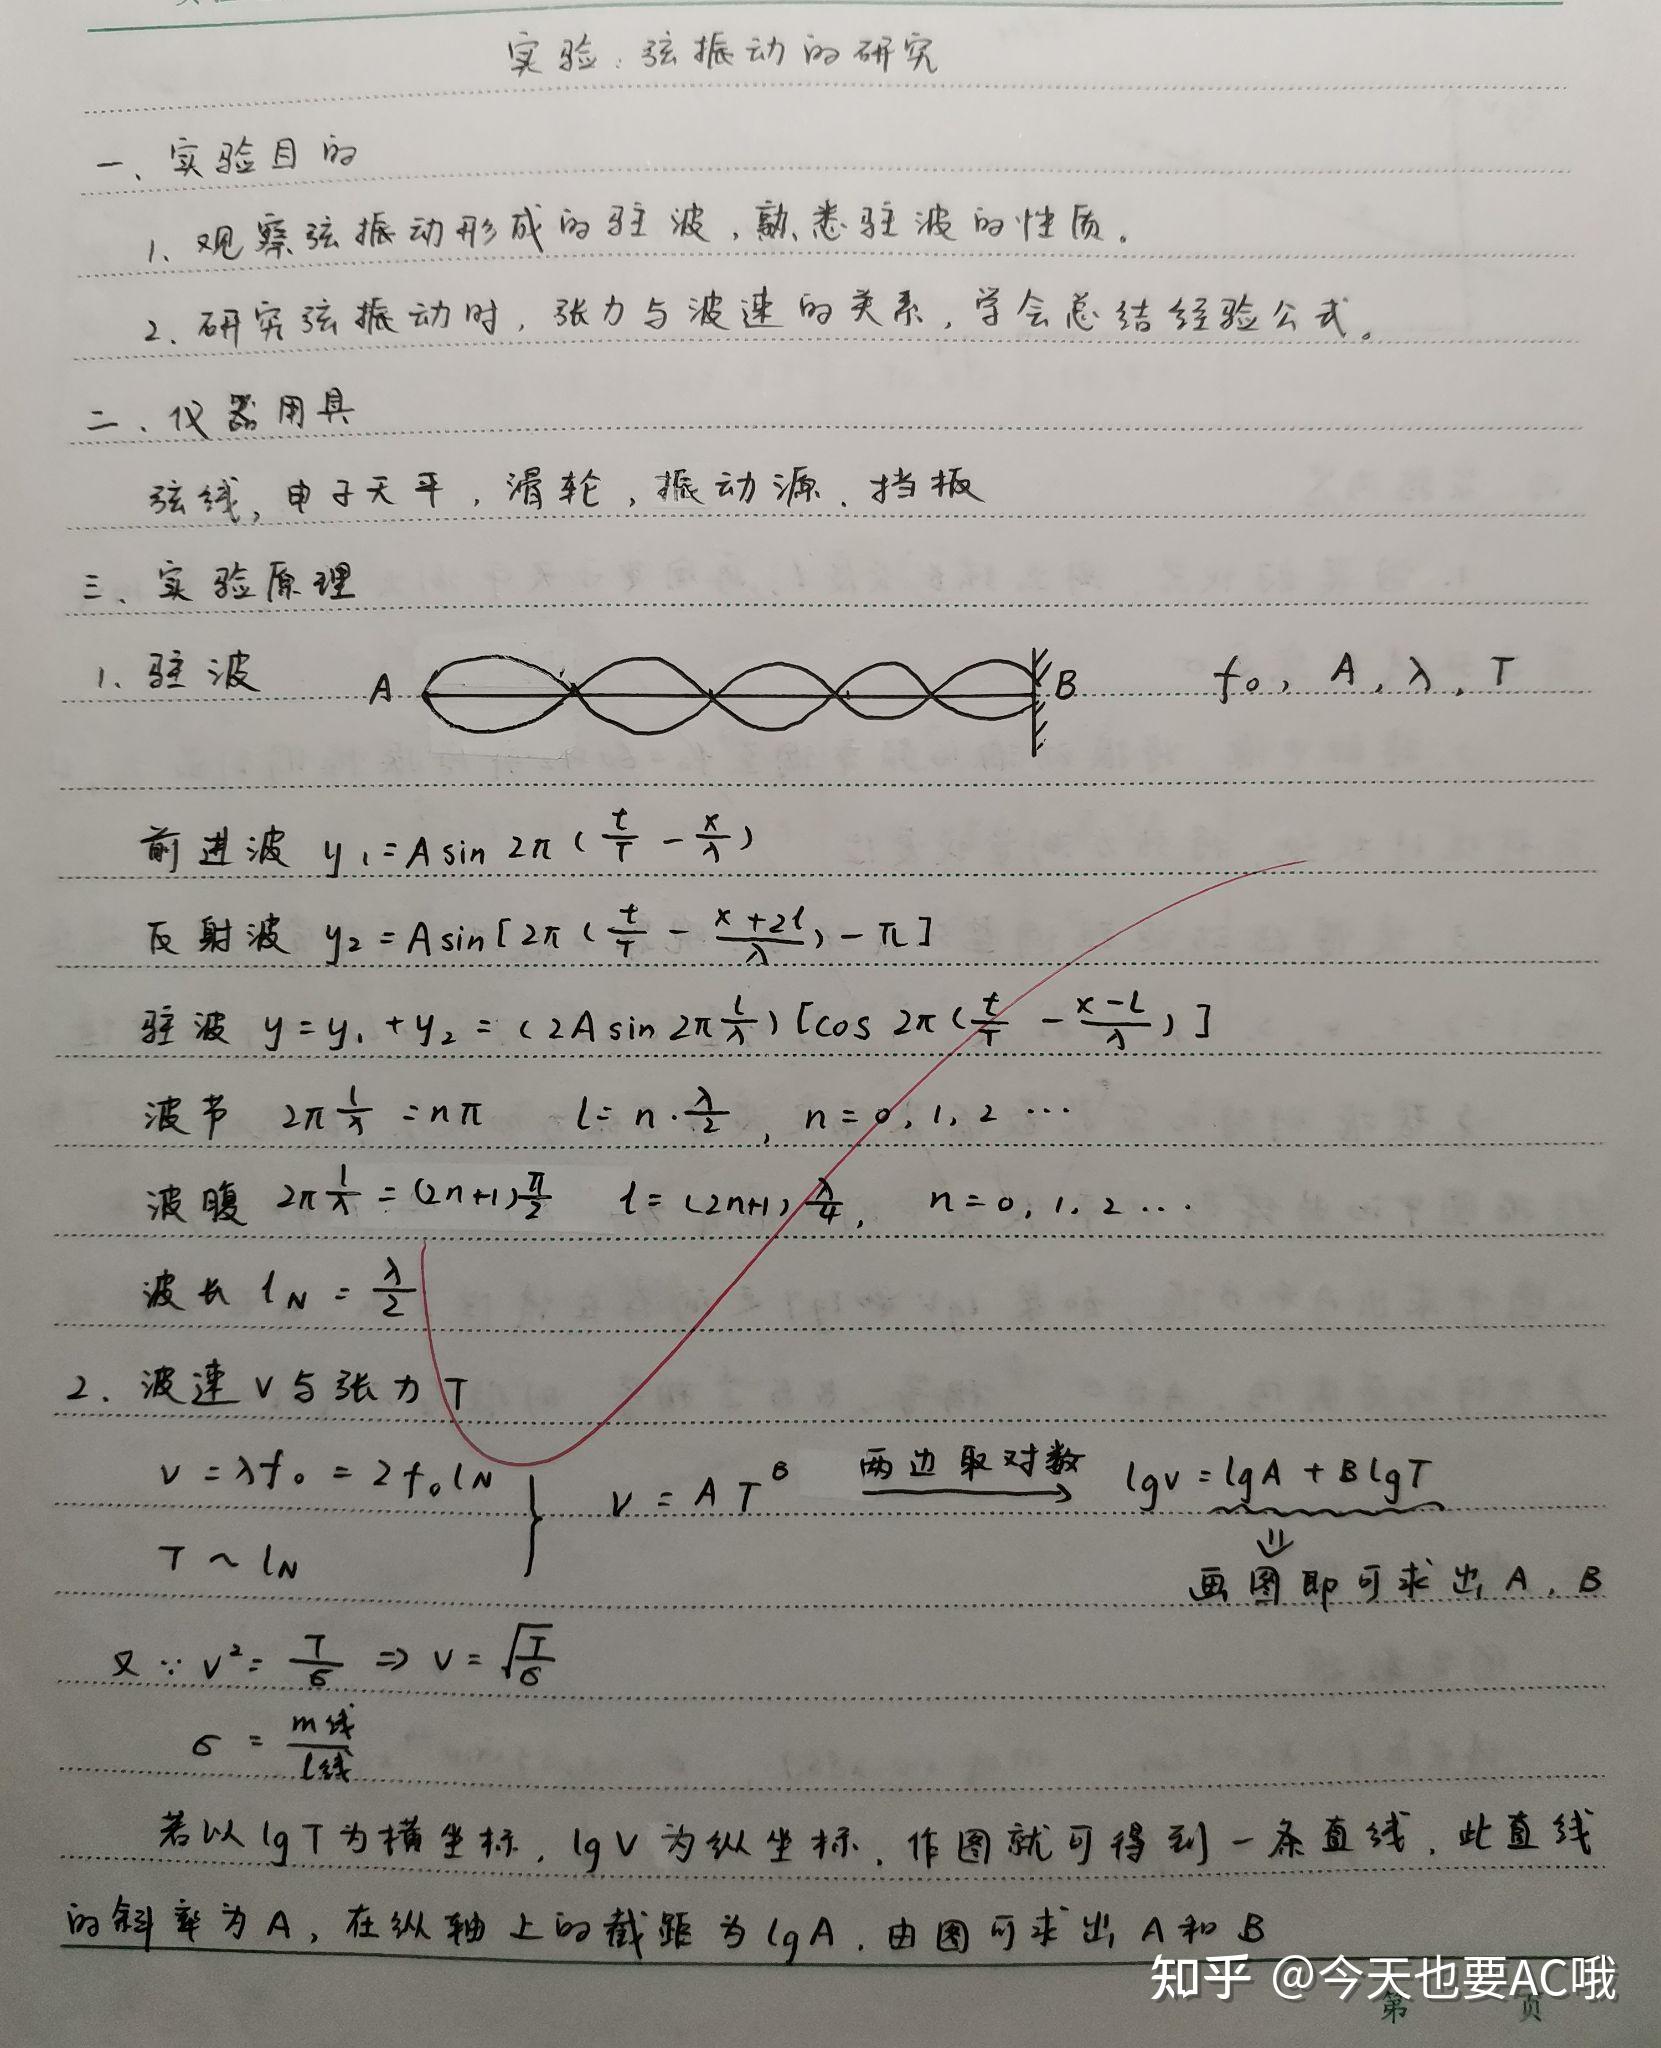 实验:弦振动的研究
一、实验目的
1. 观察弦振动形成的驻波,熟悉驻波的性质。
2. 研究弦振动时,张力与波速的关系,学会总结经验公式。
二、仪器用具
弦线,电子天平,滑轮,振动源、挡板
三、实验原理
1. 驻波 A B f₀, A, λ, T
前进波 y₁=Asin 2π(t/T - x/λ)
反射波 y₂=Asin[2π(t/T - (x+2l)/λ)-π]
驻波 y=y₁+y₂=(2Asin2π l/λ)[cos 2π(t/T - (x-l)/λ)]
波节 2π l/λ=nπ l=n·λ/2, n=0,1,2…
波腹 2π l/λ=(2n+1)π/2 l=(2n+1)λ/4, n=0,1,2…
波长 l_N=λ/2
2. 波速V与张力T
V=λf₀=2f₀l_N } V=AT^B 两边取对数→ lgv=lgA+BlgT
T~l_N ⇓ 画图即可求出A、B
又∵V²=T/σ ⇒ V=√(T/σ)
σ=m线/l线
若以lgT为横坐标,lgV为纵坐标,作图就可得到一条直线,此直线
的斜率为A,在纵轴上的截距为lgA,由图可求出A和B
知乎 @今天也要AC哦
第 页